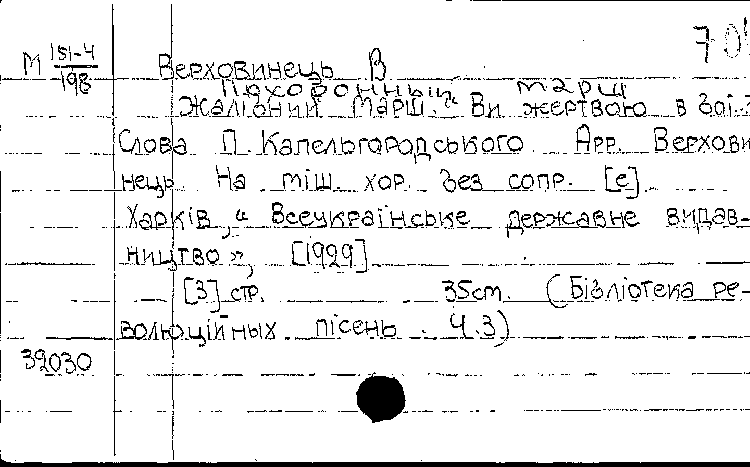 70
М 151-4
198
Верховинець В
Похоронный марш
Жалібний марш. „ Ви жертвою в бої
Слова П. Капельгородського Арр. Верхови
нець На міш. хор. без сопр. [e].
Харків, „ Всеукраїнське державне видав-
ництво", [1929].
[3] стр. 35cm. (Бібліотека ре-
волюційных пісень. Ч.3)
39030